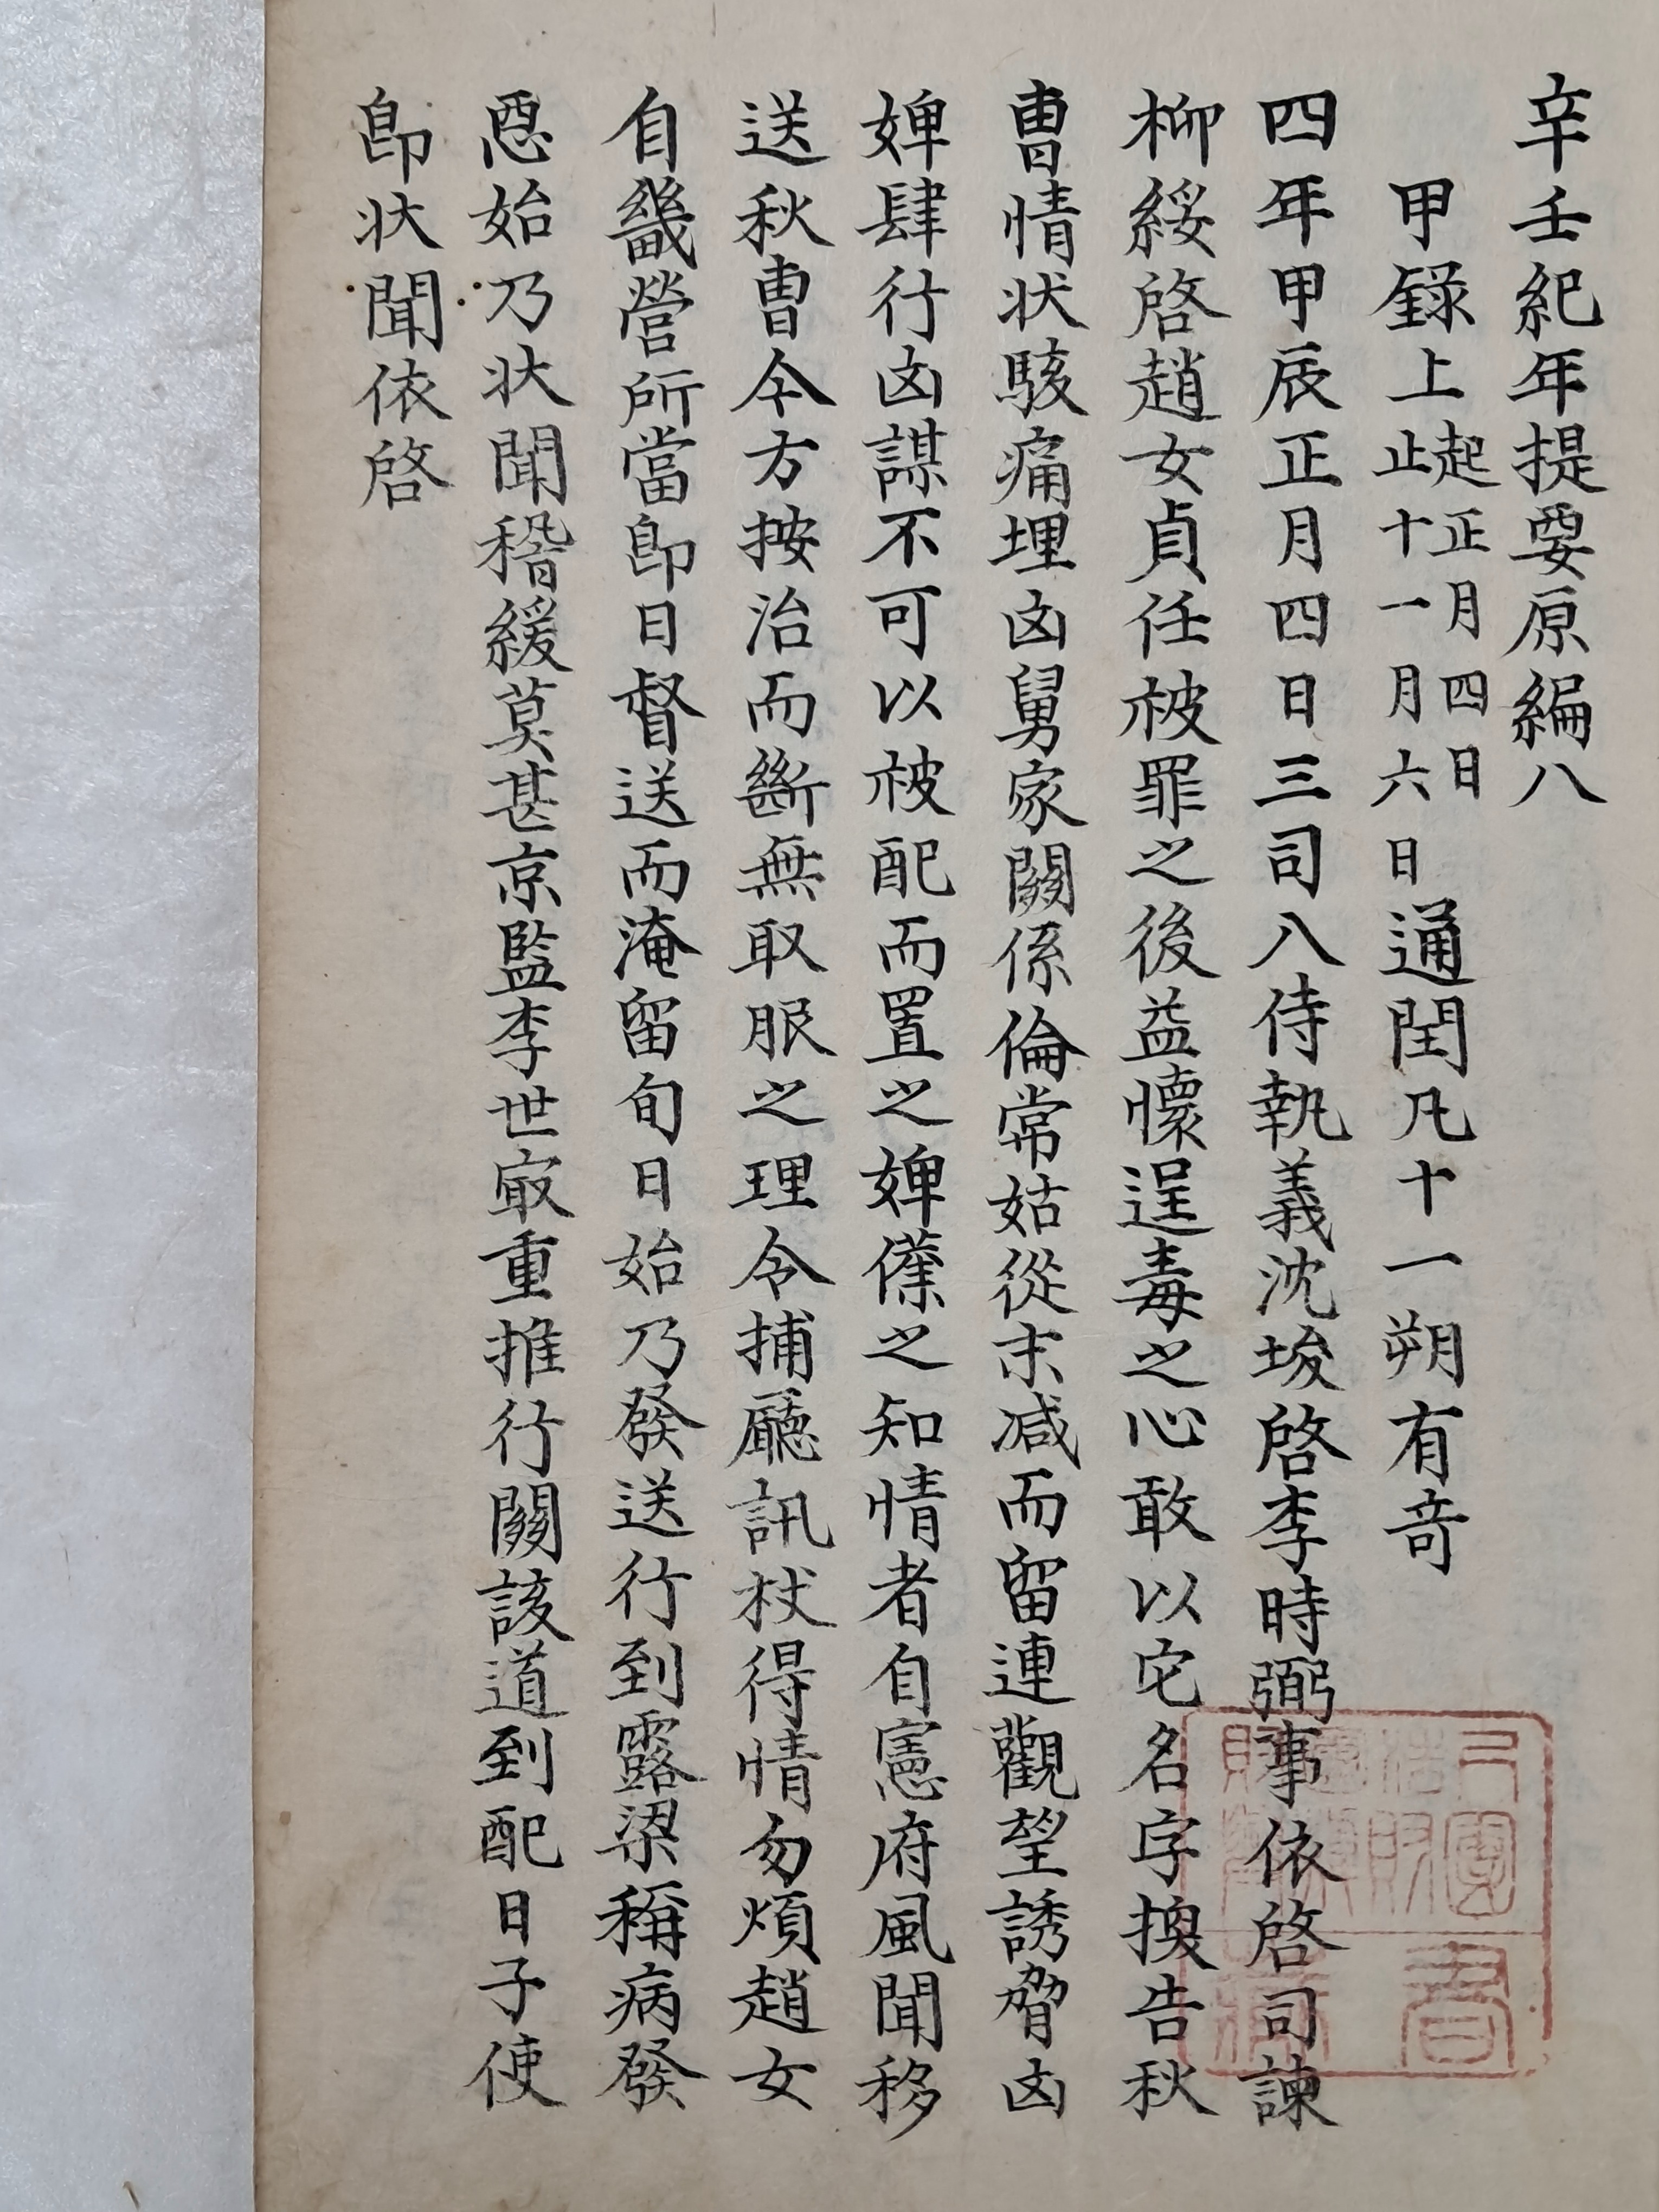 辛壬紀年提要原編八
甲錄上起正月四日止十一月六日通閏凡十一朔有奇
四年甲辰正月四日三司八侍執義沈埈啓李時弼事依啓司諫
柳綏啓趙女貞任被罪之後益懷逞毒之心敢以它名字換告秋
曺情状駭痛埋凶舅家關係倫常姑從末减而留連觀望誘脅凶
婢肆行凶謀不可以被配而置之婢僕之知情者自憲府風聞移
送秋曺今方按治而斷無取服之理令捕廳訊杖得情勿煩趙女
自畿營所當卽日督送而淹留旬日始乃發送行到露梁稱病發
惡始乃状聞稽緩莫甚京監李世㝡重推行關該道到配日子使
卽状聞依啓